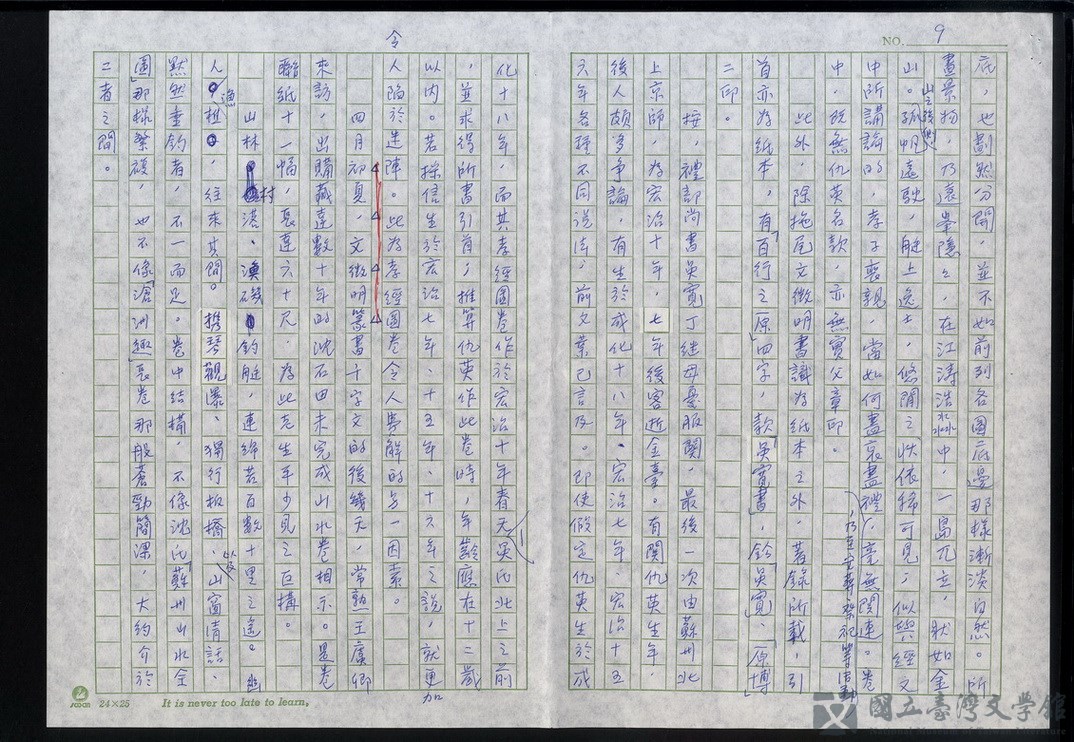 NO. 9
底，也劃然分開，並不如前列各圖底邊那樣漸淡自然。所
畫景物，乃遠峯隱隱，在江濤浩淼中，一島兀立，狀如金
山之孤懸
山。孤帆遠駛，艇上逸士，悠閒之狀依稀可見；似與經文
中所講論的，孝子喪親，當如何盡哀盡禮，毫無關連。卷
，乃至守葬、祭祀等活動
中，既無仇英名款，亦無實父章印。
此外，除拖尾文徵明書識為紙本之外，著錄所載，引
首亦為紙本，有「百行之原」四字，款「吳寬書」，鈐「吳寬」、「原博」
二印。
按，禮部尚書吳寬丁繼母憂服闋，最後一次由蘇州北
上京師，為宏治十年，七年後客逝金臺。有關仇英生年，
後人頗多爭論，有生於成化十八年、宏治七年、宏治十五
六年各種不同說法；前文業已言及。即使假定仇英生於成
化十八年，而其孝經圖卷作於宏治十年春天吳氏北上之前
，並求得所書引首；推算仇英作此卷時，年齡應在十二歲
以內。若採信生於宏治七年、十五年、十六年之說，就更加
令
人陷於迷陣。此為孝經圖卷令人費解的另一因素。
四月初見，文徵明篆書千字文的後幾天，常熟王虞卿
來訪，出購藏達數十年的沈石田未完成山水卷相示。是卷
聯紙十一幅，長達六十尺，為此老生平少見之巨構。
山林村港、漁磯釣艇，連綿若百數十里之遙。幽
人漁樵，往來其間。攜琴觀瀑、獨行板橋，以及山窗清話、
默然垂釣者，不一而足。卷中結構，不像沈氏「蘇州山水全
圖」那樣繁複，也不像「滄洲趣」長卷那般蒼勁簡潔，大約介於
二者之間。
24×25
It is never too late to learn,
國立臺灣文學館
National Museum of Taiwan Literature